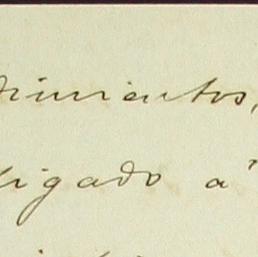 dimientos,
ligado a